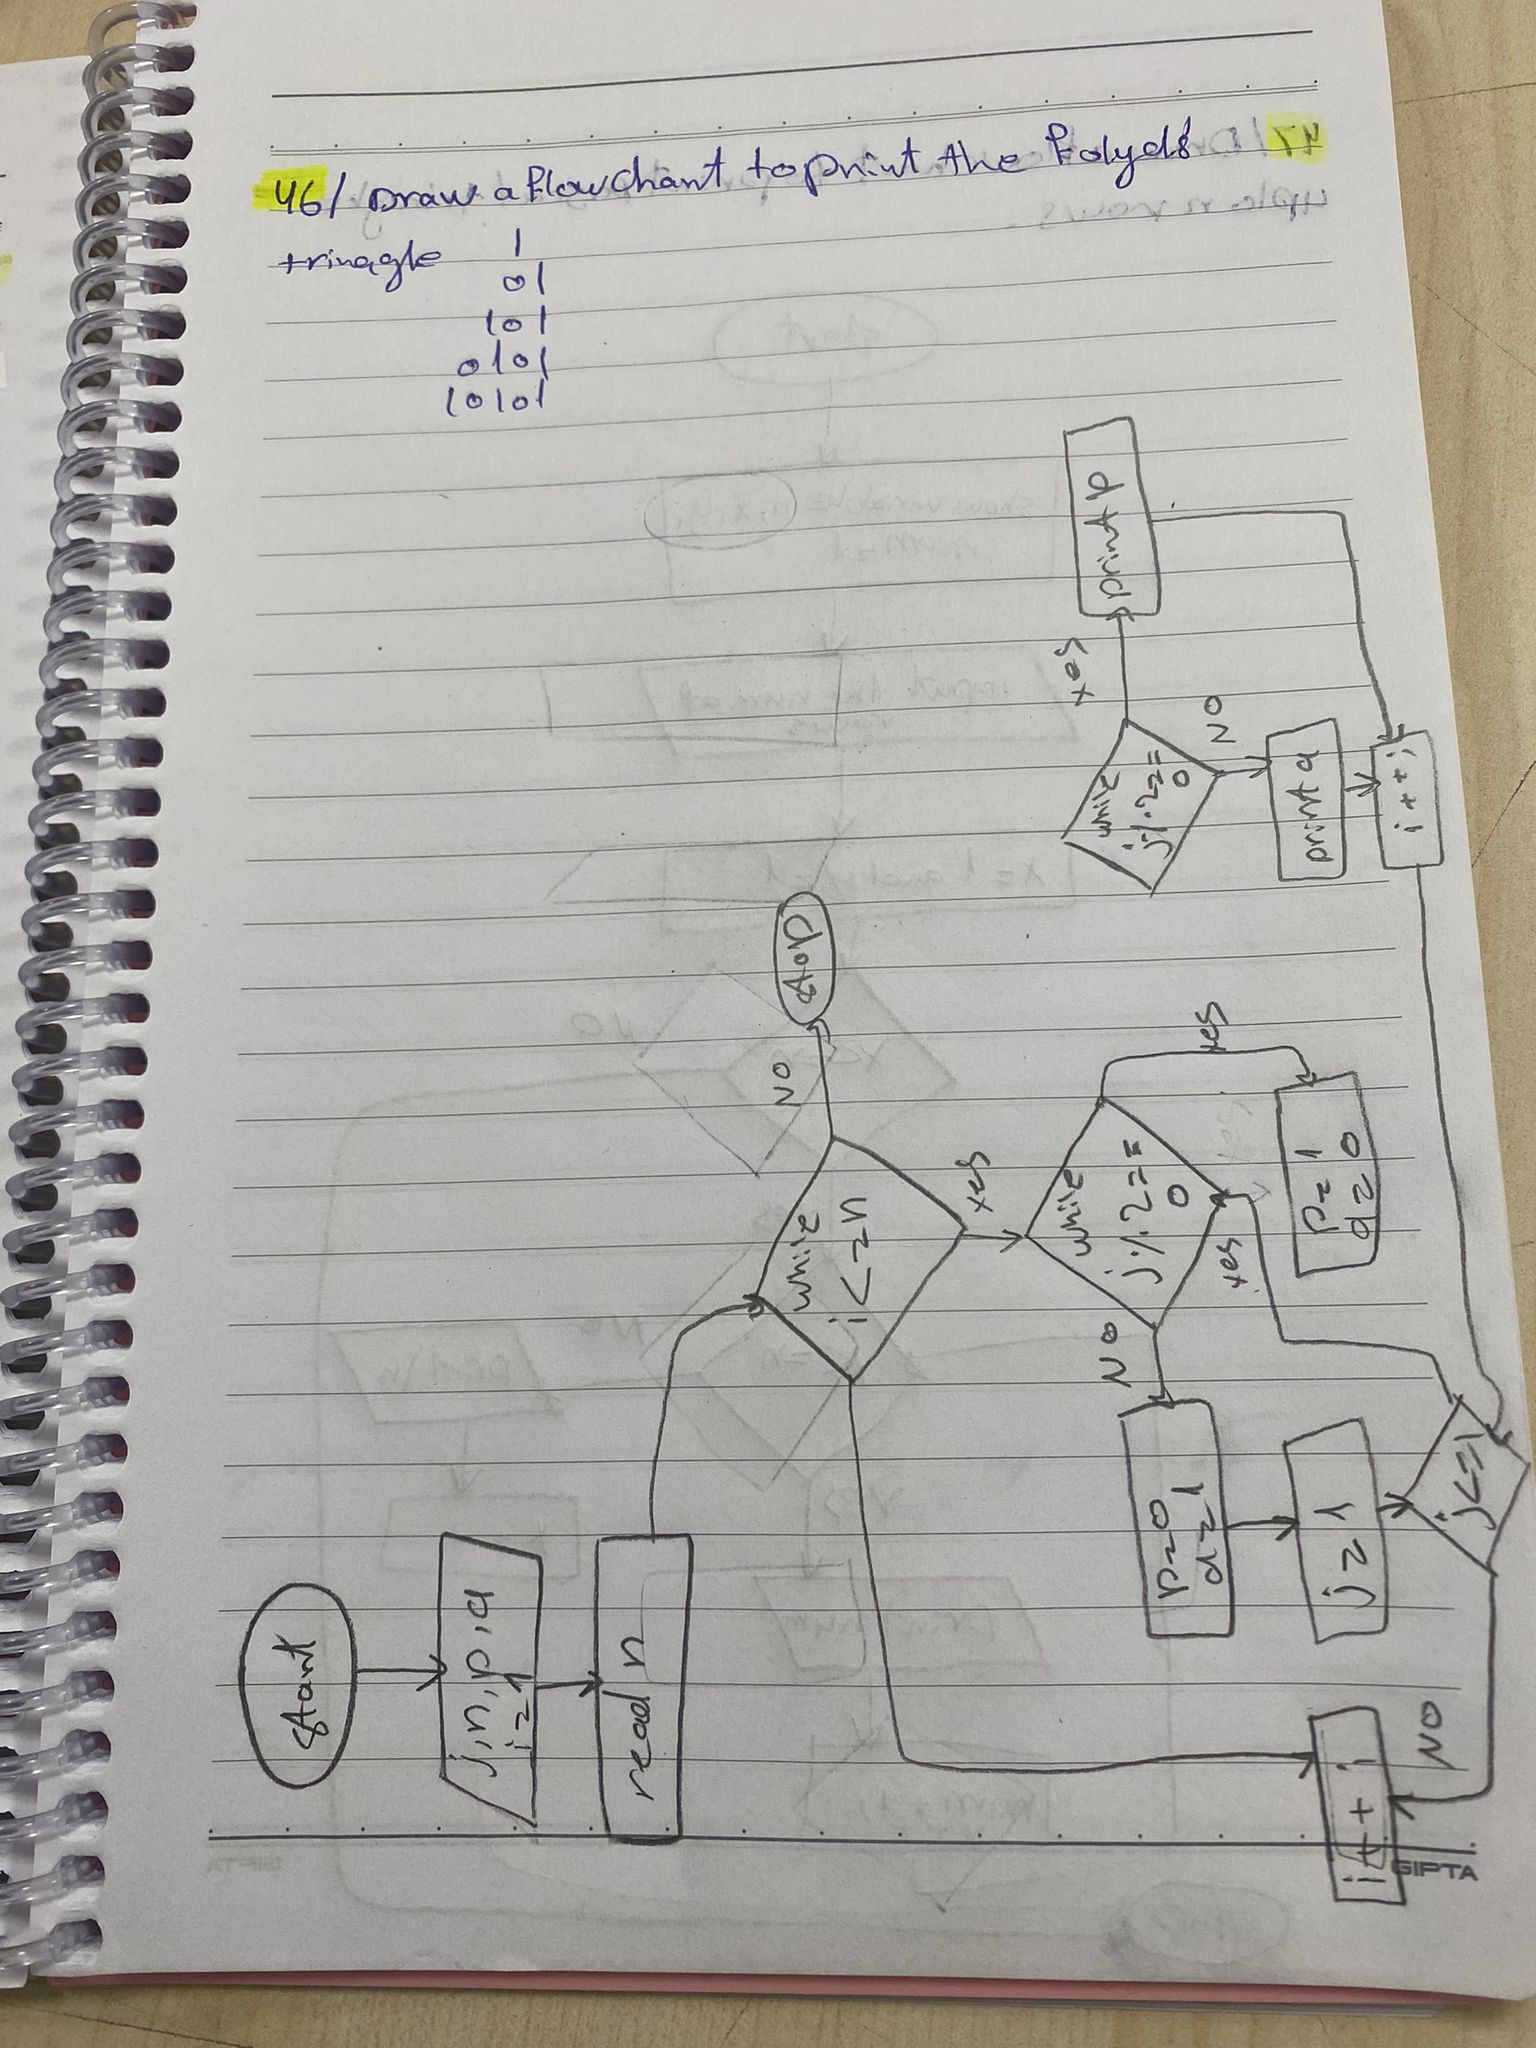 46/ Draw a flowchart to print the Folyd's
trinagle 1
01
101
0101
10101
start
j,n,p,q
i=1
read n
while
i<=n
NO
stop
yes
while
j%2==
0
NO
yes
yes
p=0
q=1
p=1
q=0
j=1
j<=i
NO
while
j%2==
0
yes
print p
NO
print q
i++;
GIPTA